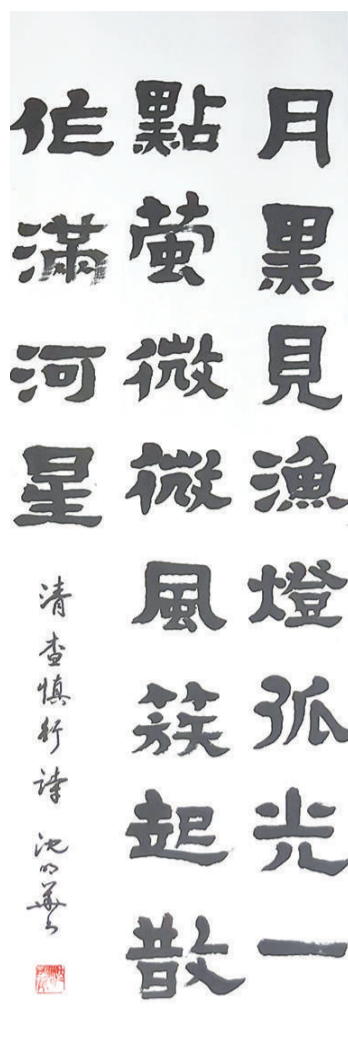 月黑見漁燈孤光一
點萤微微風簇起散
作滿河星
清查慎行詩 沈明